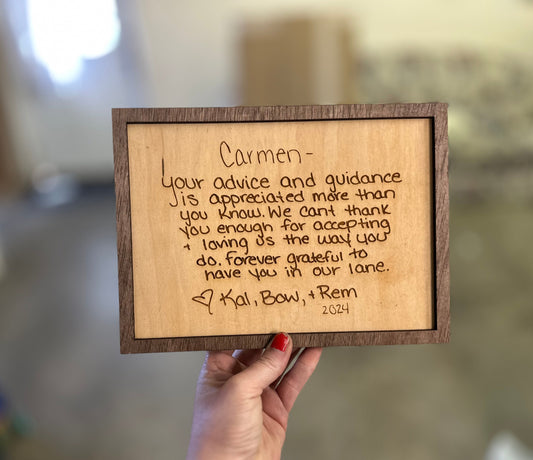 Carmen-
Your advice and guidance
is appreciated more than
you know. We cant thank
you enough for accepting
+ loving us the way you
do. forever grateful to
have you in our lane.
♡ Kal, Bow, + Rem
2024